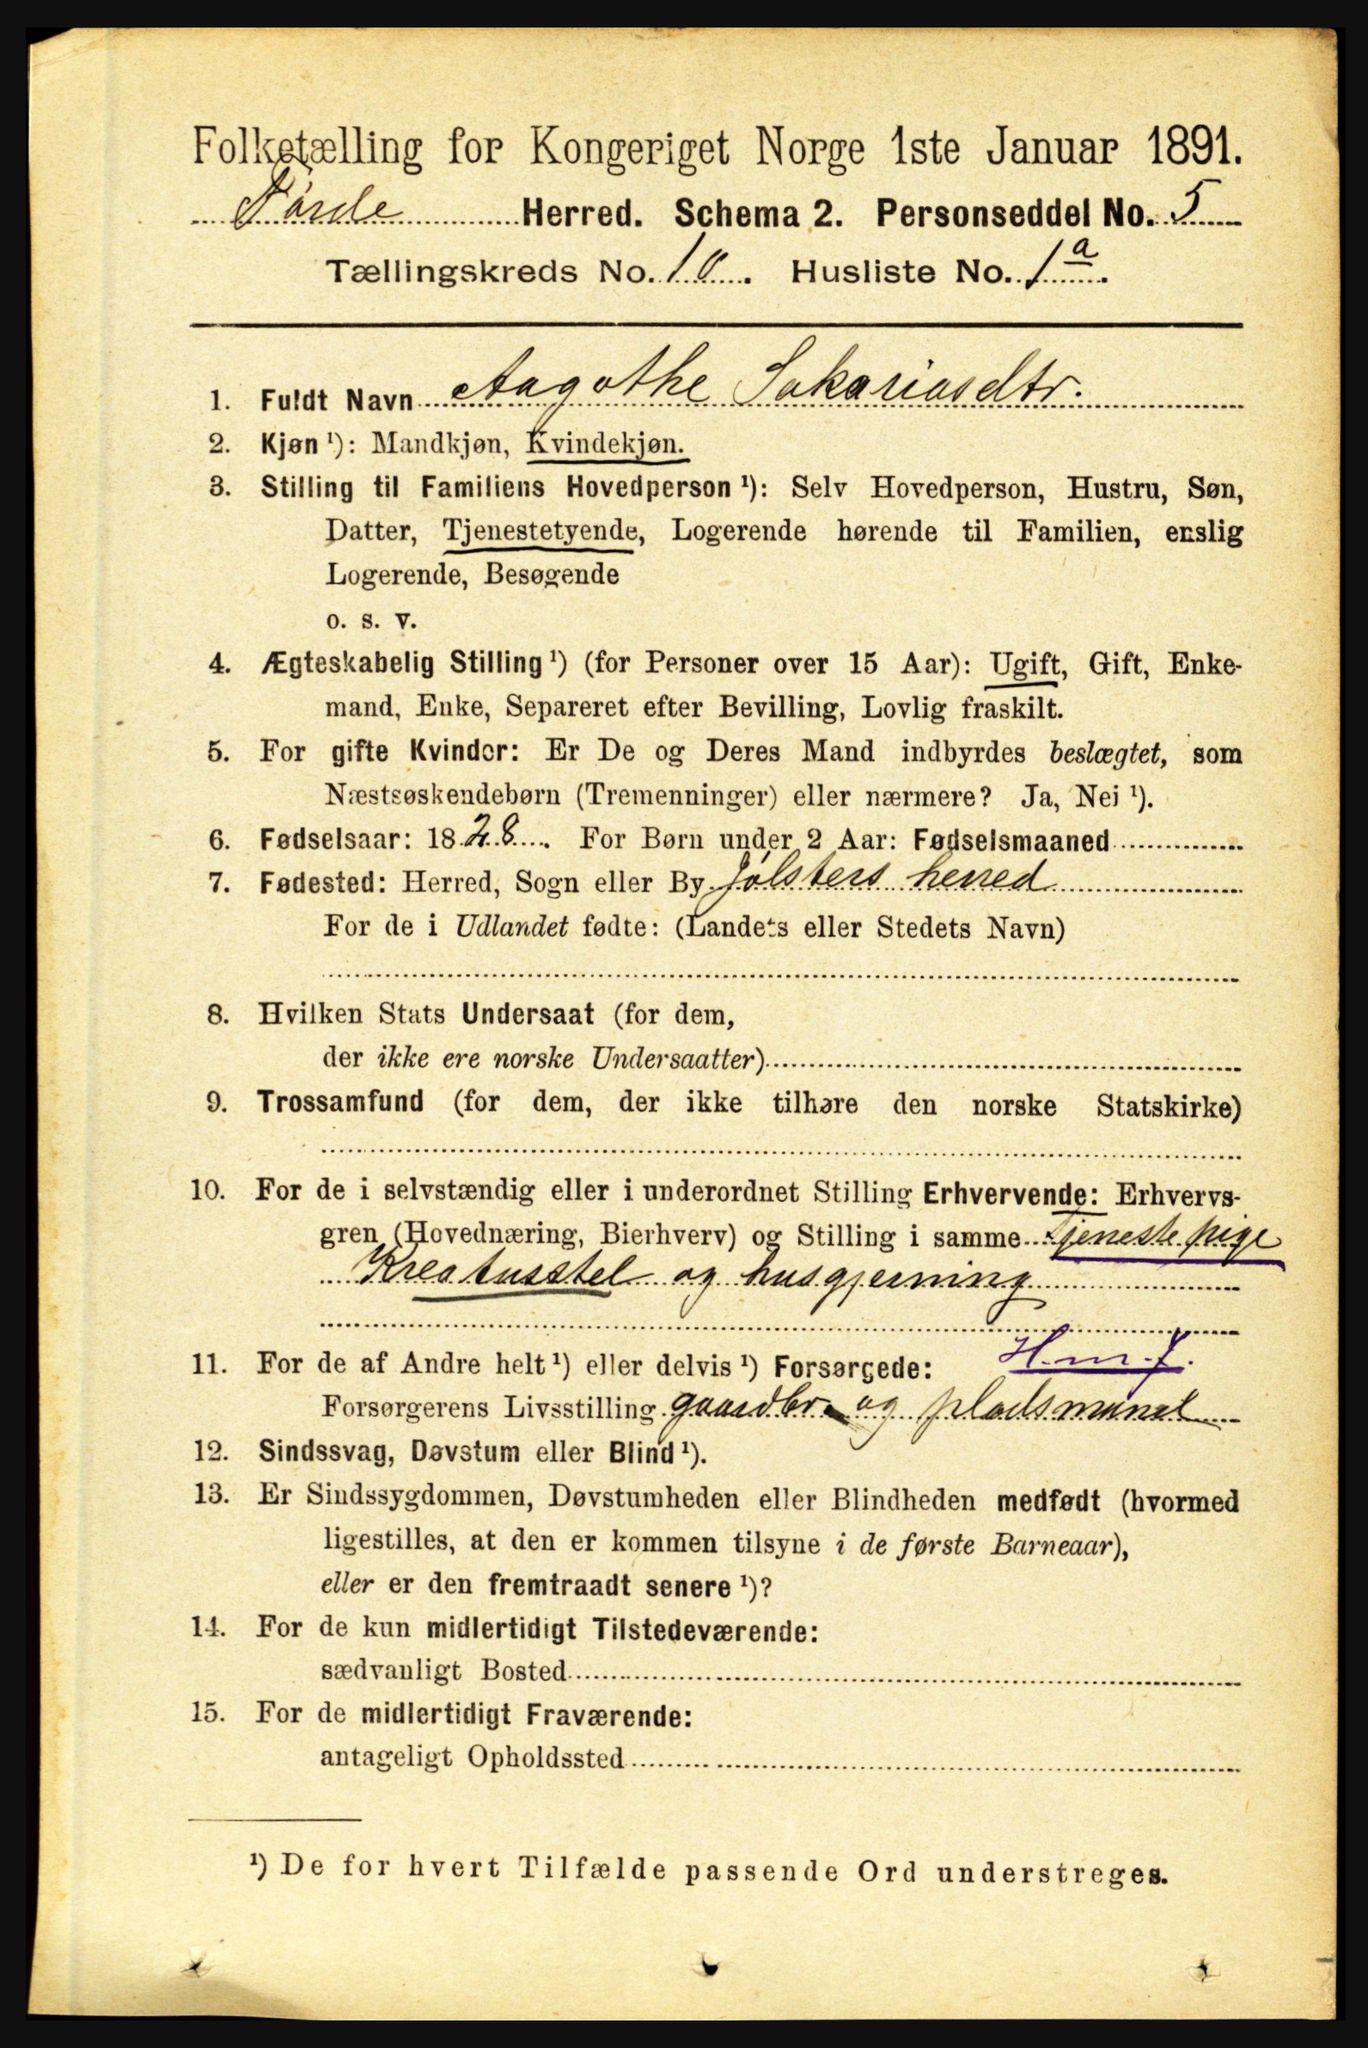 Folketælling for Kongeriget Norge 1ste Januar 1891.
Førde Herred. Schema 2. Personseddel No. 5
Tællingskreds No. 10. Husliste No. 1a.
1. Fuldt Navn Aagothe Sakariasdtr.
2. Kjøn ¹): Mandkjøn, Kvindekjøn.
3. Stilling til Familiens Hovedperson ¹): Selv Hovedperson, Hustru, Søn,
Datter, Tjenestetyende, Logerende hørende til Familien, enslig
Logerende, Besøgende
o. s. v.
4. Ægteskabelig Stilling ¹) (for Personer over 15 Aar): Ugift, Gift, Enke-
mand, Enke, Separeret efter Bevilling, Lovlig fraskilt.
5. For gifte Kvinder: Er De og Deres Mand indbyrdes beslægtet, som
Næstsøskendebørn (Tremenninger) eller nærmere? Ja, Nei ¹).
6. Fødselsaar: 1828. For Børn under 2 Aar: Fødselsmaaned
7. Fødested: Herred, Sogn eller By Jølsters herred
For de i Udlandet fødte: (Landets eller Stedets Navn)
8. Hvilken Stats Undersaat (for dem,
der ikke ere norske Undersaatter)
9. Trossamfund (for dem, der ikke tilhøre den norske Statskirke)
10. For de i selvstændig eller i underordnet Stilling Erhvervende: Erhvervs-
gren (Hovednæring, Bierhverv) og Stilling i samme Tjenestepige
Kreatusstel og husgjerning
11. For de af Andre helt ¹) eller delvis ¹) Forsørgede: H. m. f.
Forsørgerens Livsstilling gaardbr. og pladsmand
12. Sindssvag, Døvstum eller Blind ¹).
13. Er Sindssygdommen, Døvstumheden eller Blindheden medfødt (hvormed
ligestilles, at den er kommen tilsyne i de første Barneaar),
eller er den fremtraadt senere ¹)?
14. For de kun midlertidigt Tilstedeværende:
sædvanligt Bosted
15. For de midlertidigt Fraværende:
antageligt Opholdssted
¹) De for hvert Tilfælde passende Ord understreges.